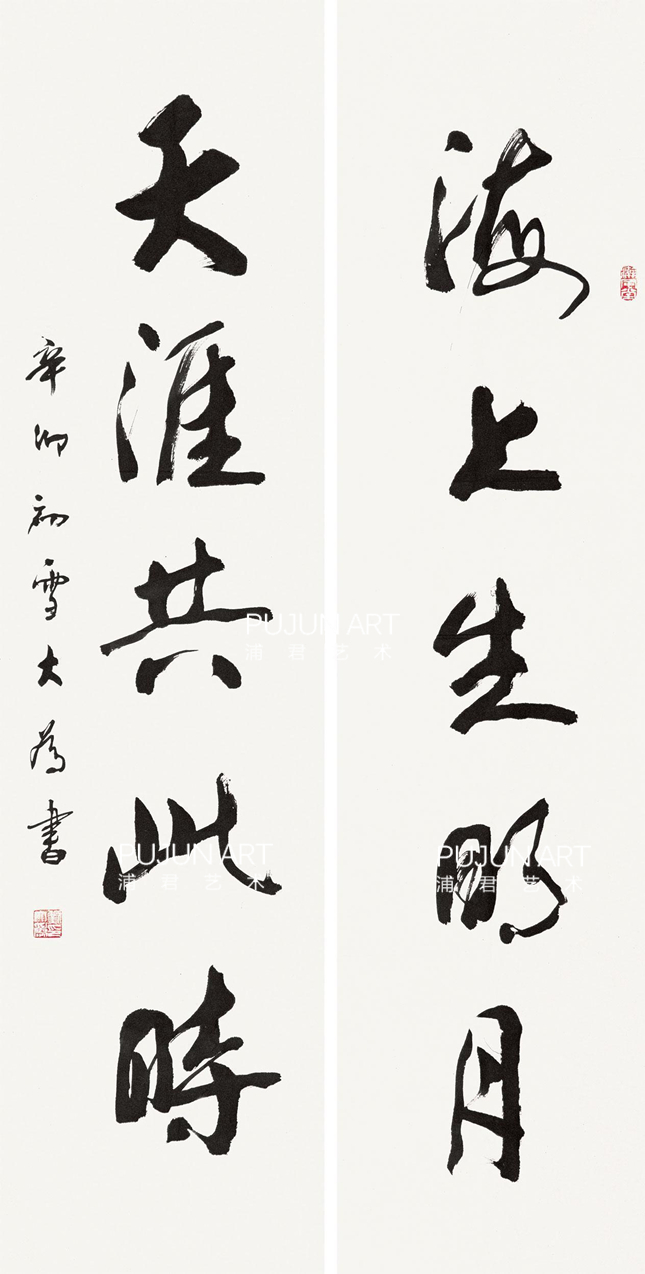 海上生明月
天涯共此時
辛卯初雪大為書
PUJUN ART
浦君艺术
PUJUN ART
浦君艺术
PUJUN ART
浦君艺术